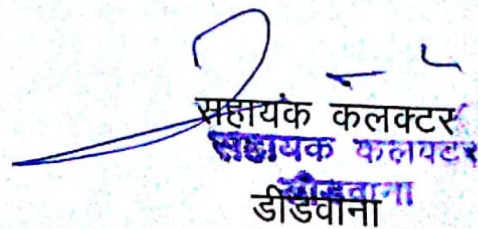 सहायक कलक्टर
सहायक कलक्टर
डीडवाना
डीडवाना